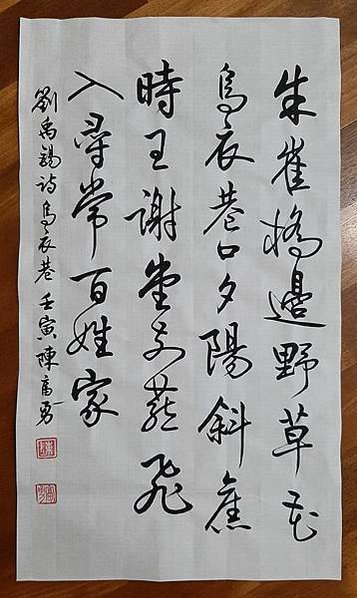 朱雀橋邊野草花
烏衣巷口夕陽斜舊
時王謝堂前燕飛
入尋常百姓家
劉禹錫詩烏衣巷 壬寅陳勇